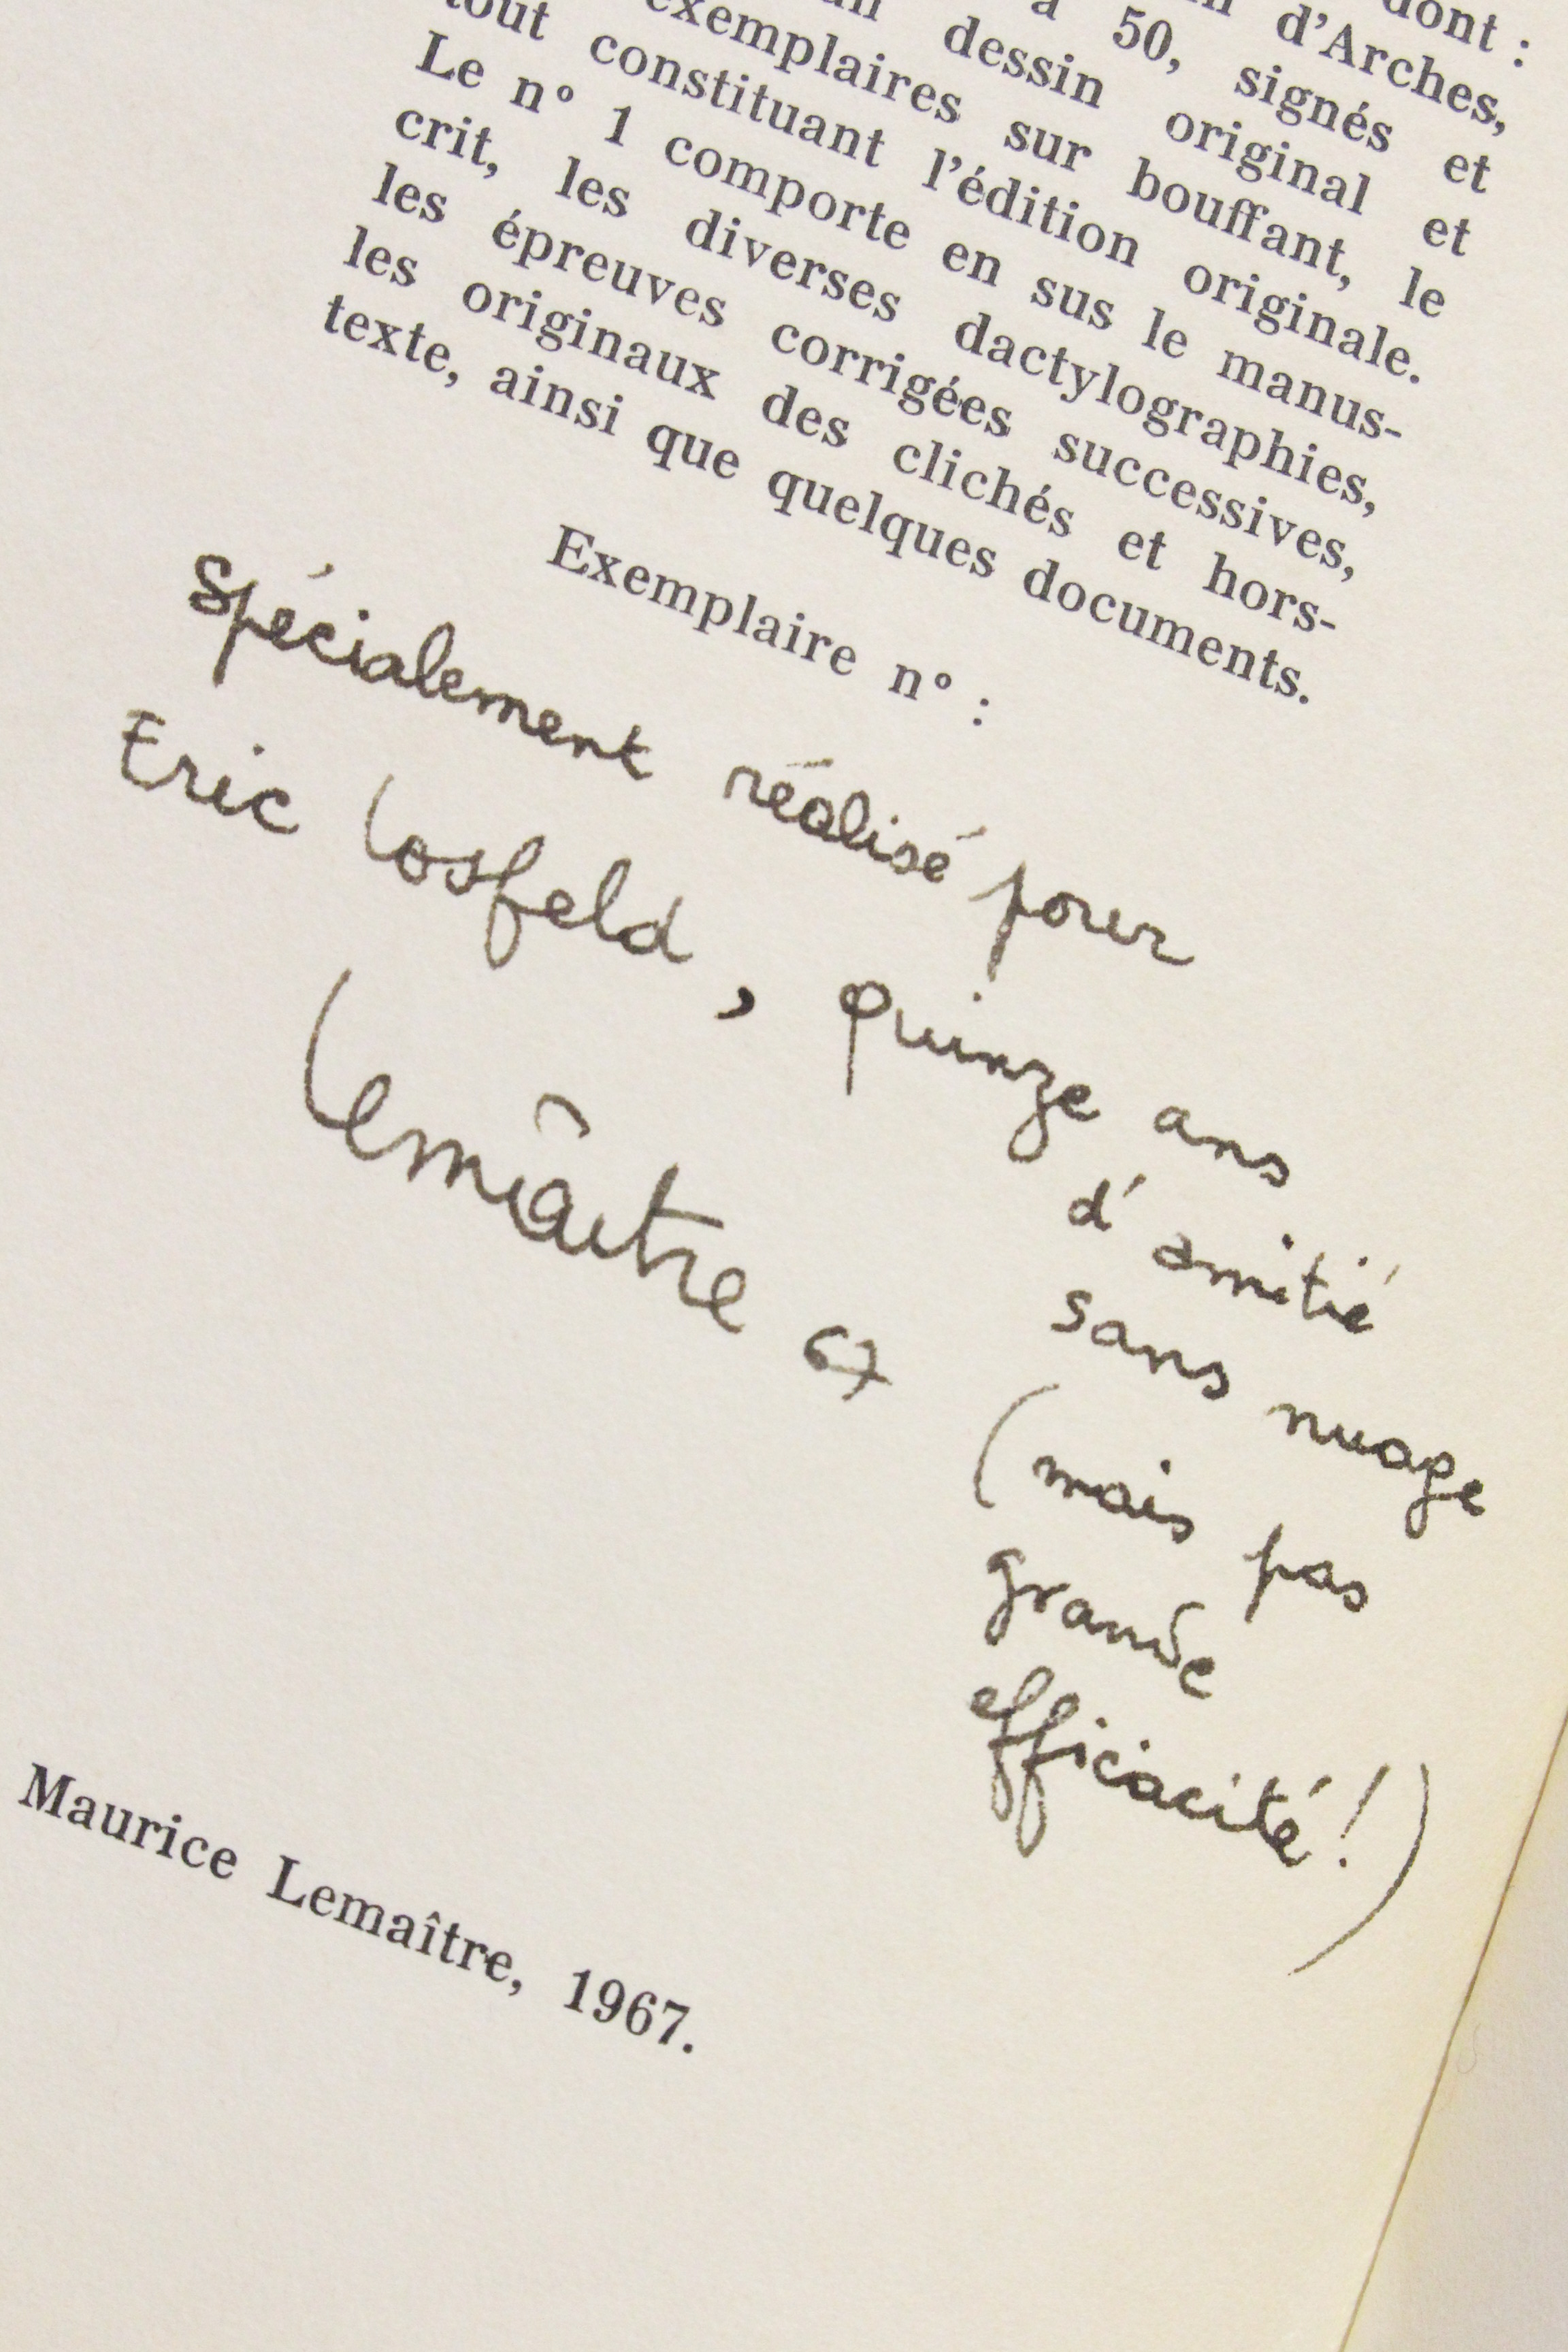 dont :
d'Arches,
à 50, signés et
dessin original et
exemplaires sur bouffant, le
tout constituant l'édition originale.
Le n° 1 comporte en sus le manus-
crit, les diverses dactylographies,
les épreuves corrigées successives,
les originaux des clichés et hors-
texte, ainsi que quelques documents.
Exemplaire n° :
Spécialement réalisé pour
Eric Losfeld, quinze ans
d'amitié
sans nuage
(mais pas
grande
efficacité!)
Lemaître 67
Maurice Lemaître, 1967.